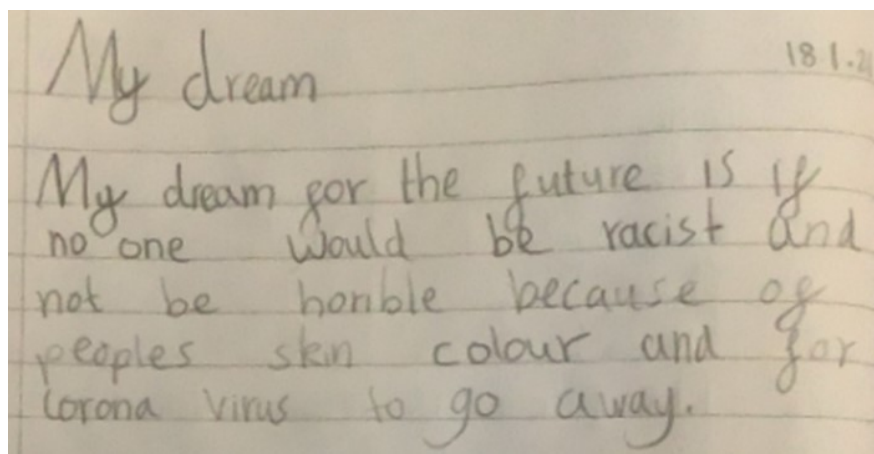 My dream
18.1.21
My dream for the future is if
no one would be racist and
not be horible because of
peoples skin colour and for
corona virus to go away.